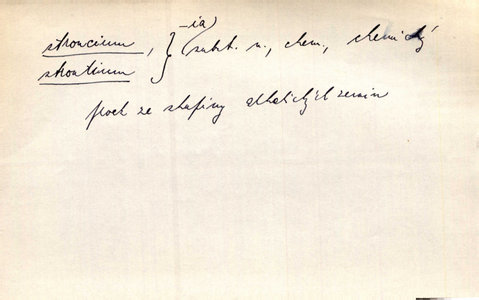 stroncium, } -ia
strontium } (subst. n., chem., chemický
prvek ze skupiny alkalických zemin